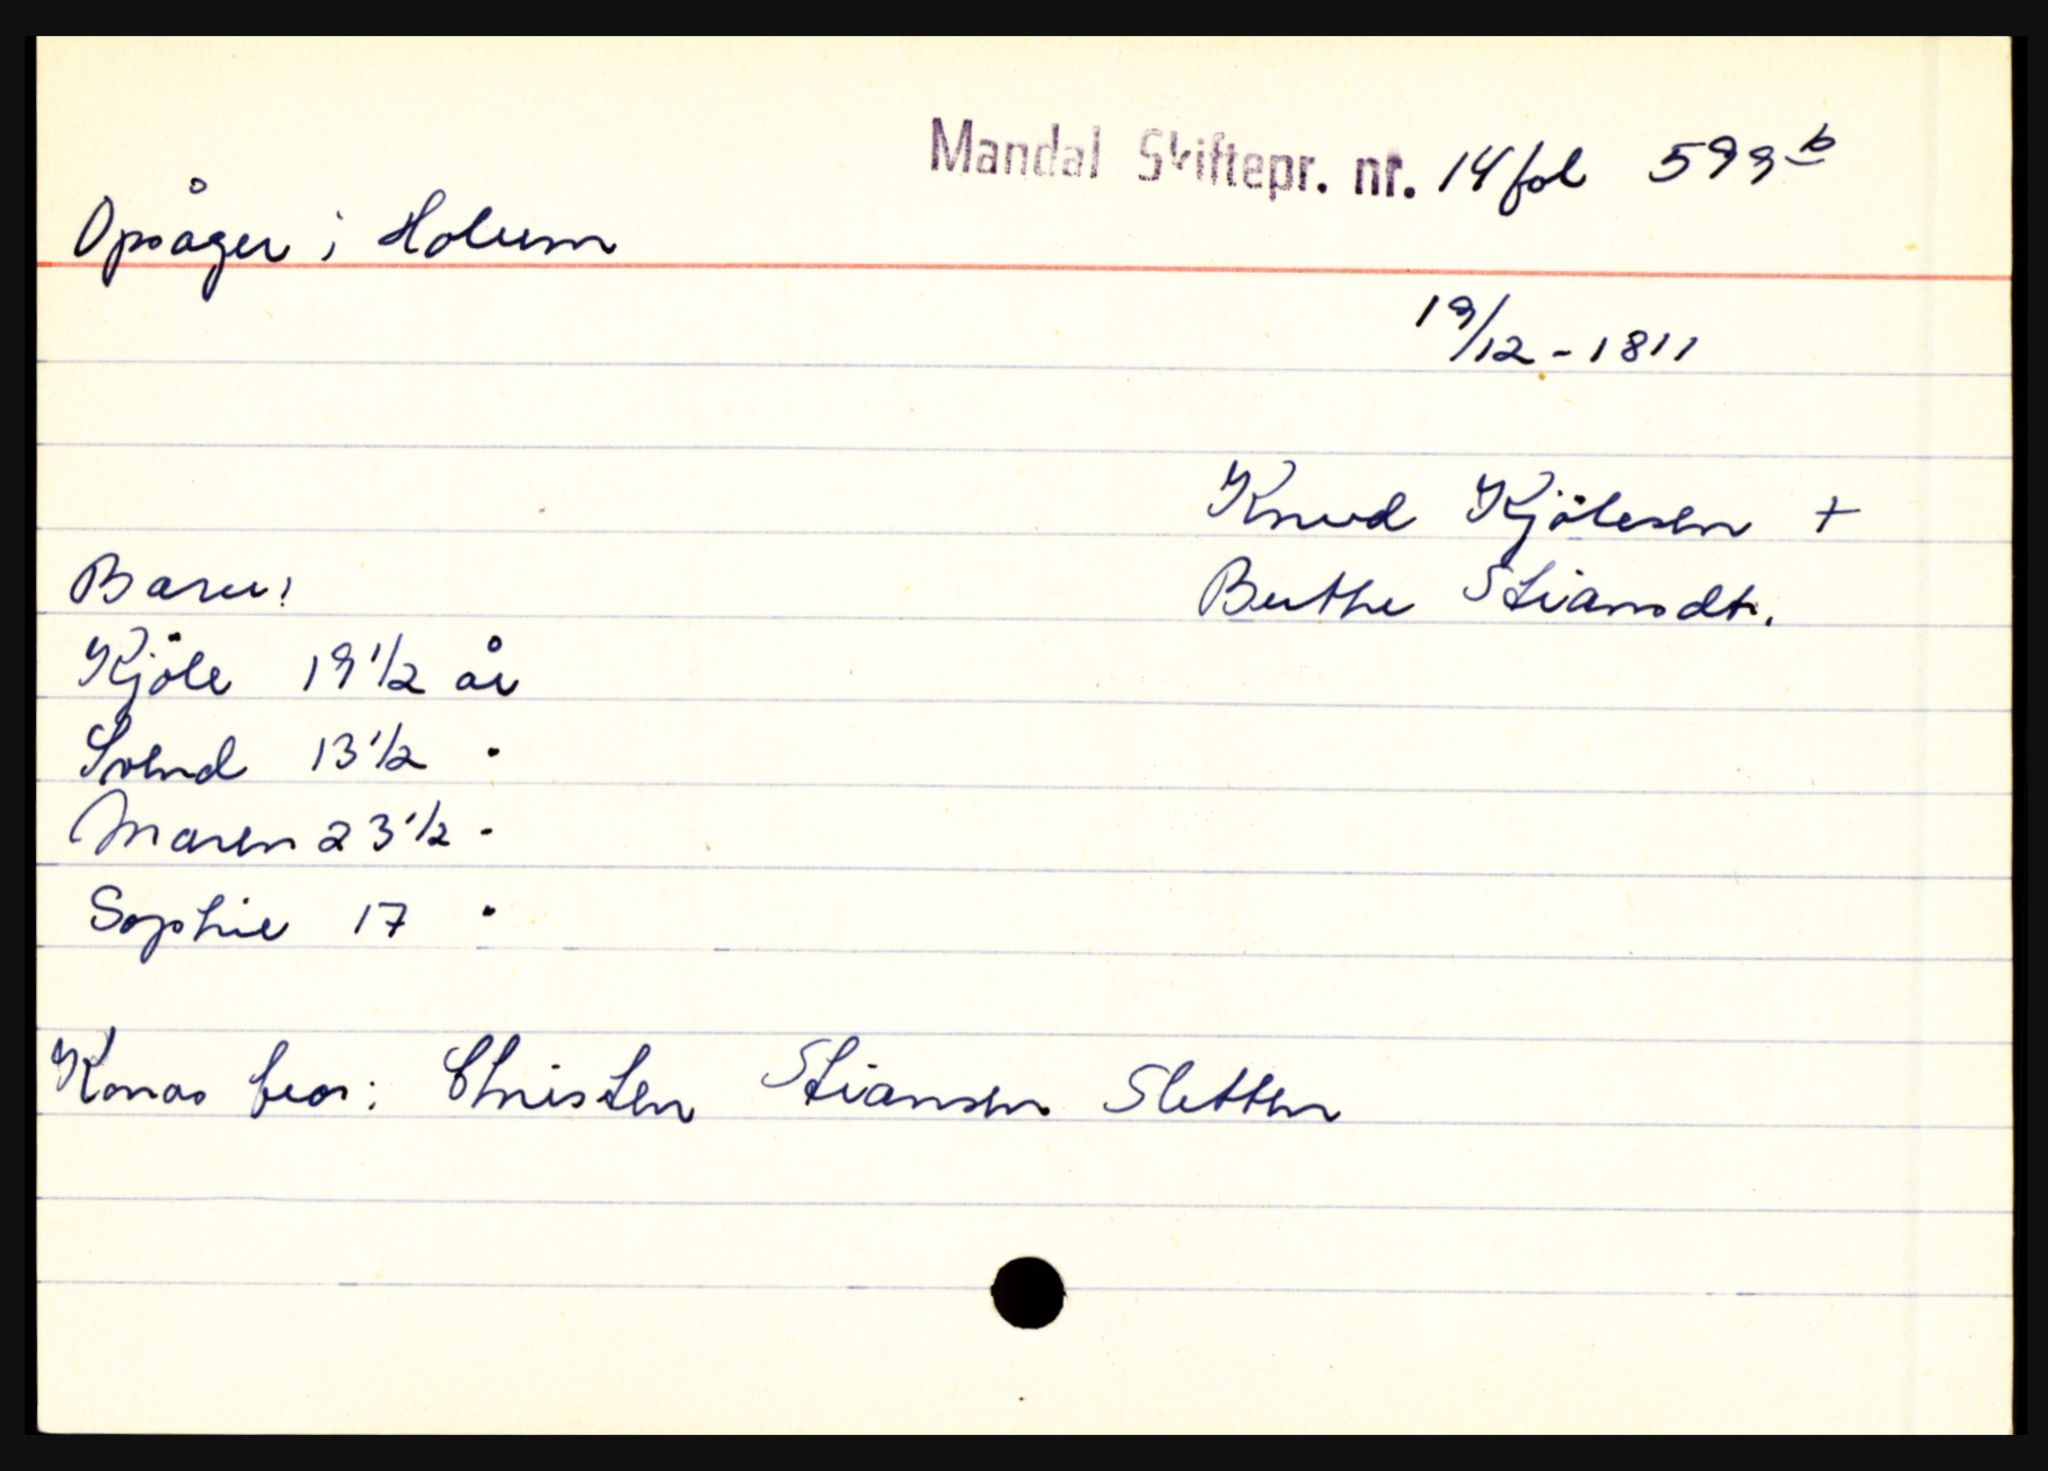 Mandal Skiftepr. nr. 14 fol 599 b
Opsåger i Holum
19/12 - 1811
Knud Kjölesen +
Barn:
Berthe Stiansdt.
Kjöle 19 1/2 år
Svend 13 1/2 "
Maren 23 1/2 "
Sophie 17 "
Konas bror: Christen Stiansen Sletten